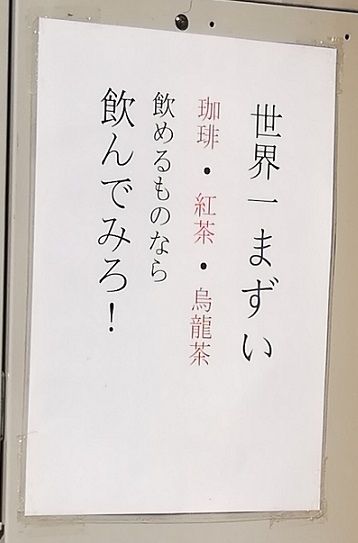 世界一まずい
珈琲・紅茶・烏龍茶
飲めるものなら
飲んでみろ！